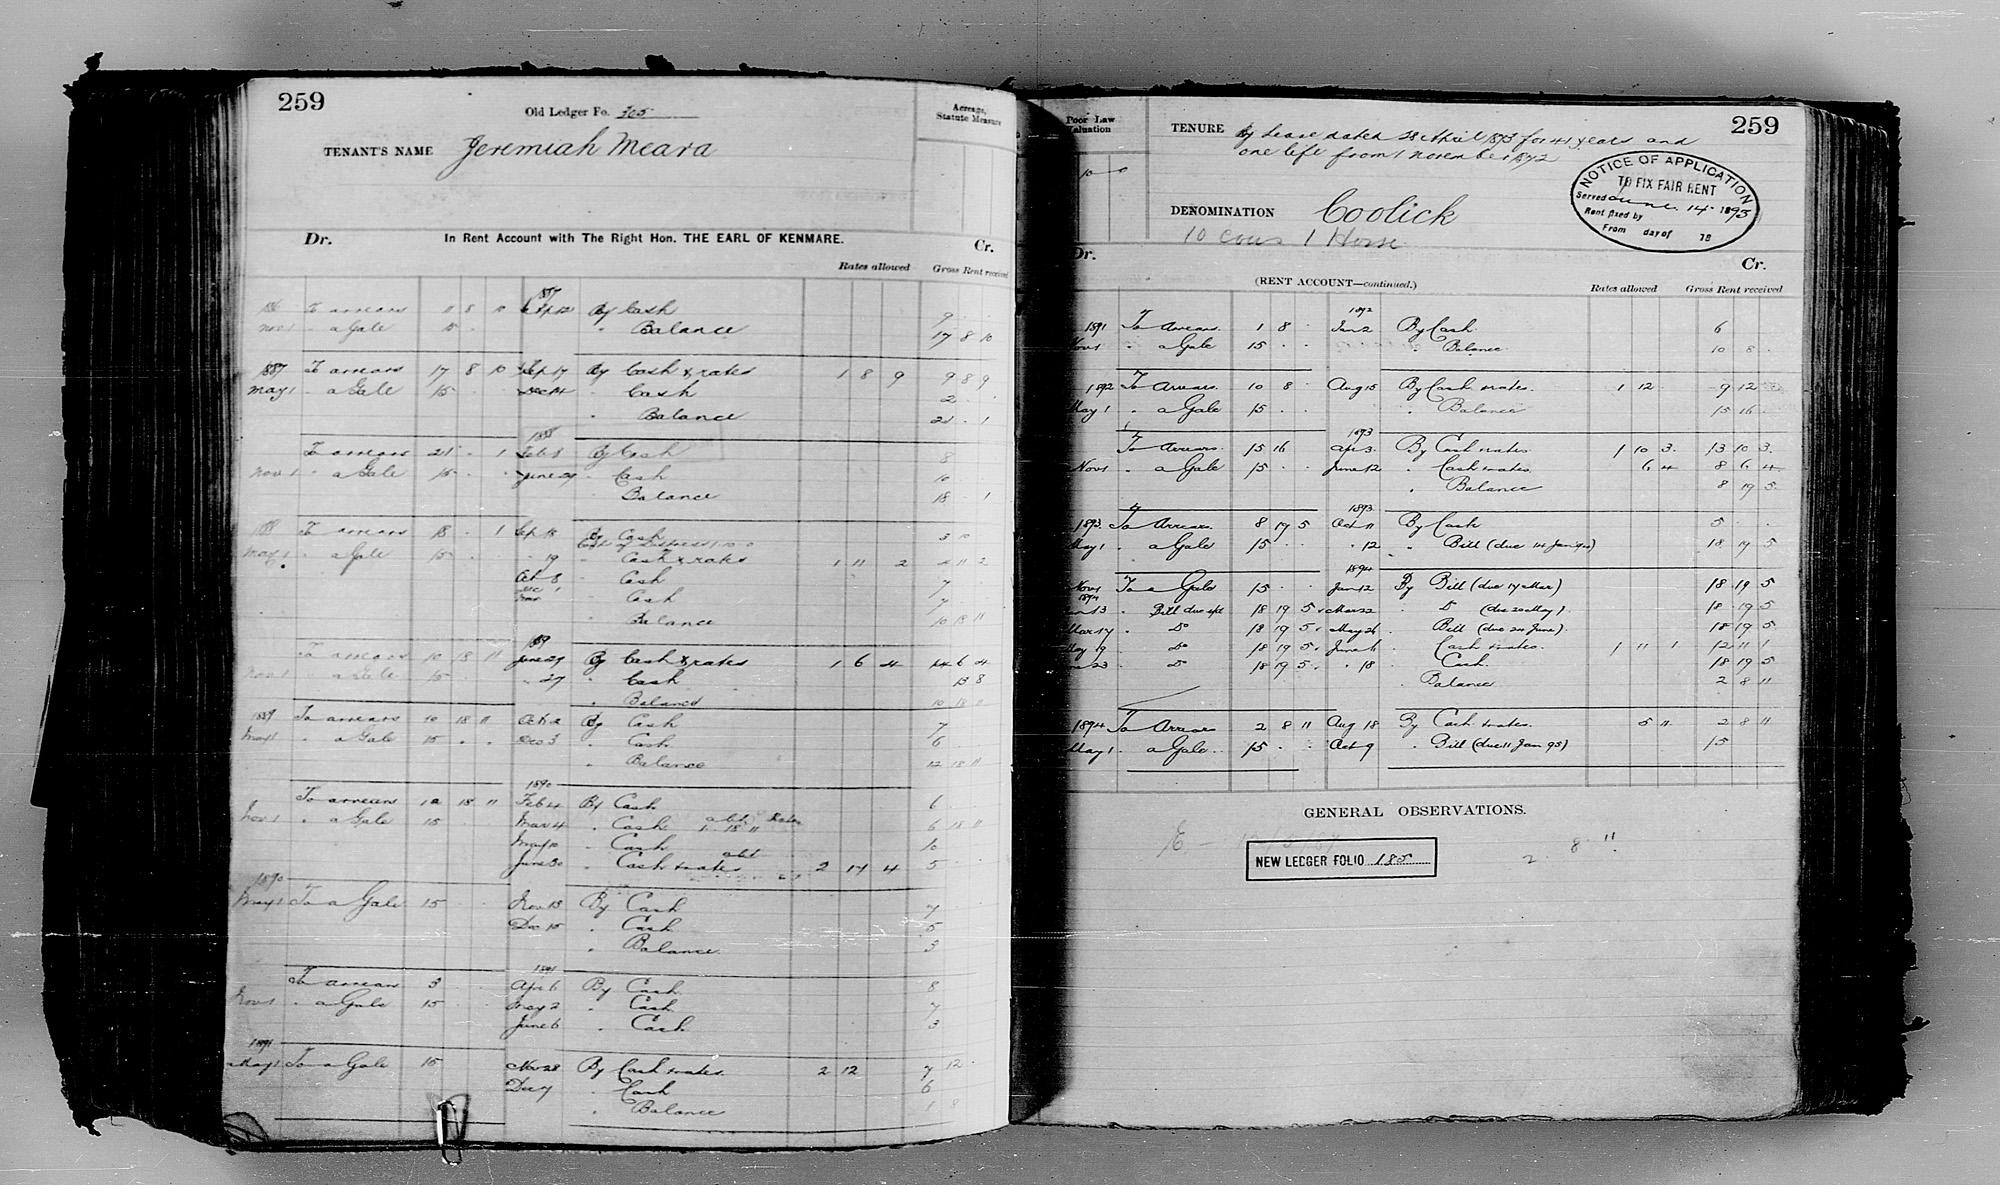 259
Old Ledger Fo. 705
Acreage, Statute Measure
TENANT'S NAME Jeremiah Meara
Dr. In Rent Account with The Right Hon. THE EARL OF KENMARE. Cr.
Rates allowed Gross Rent received
1887
To arrears 11 8 10 Sep 12 By Cash 9
Nov 1 " a Gale 15 " Balance 17 8 10
1887 To arrears 17 8 10 Sep 17 By Cash & rates 1 8 9 9 8 9
May 1 " a Gale 15 Dec 14 " Cash 2
" Balance 21 . 1
1888
To arrears 21 . 1 Feb 8 By Cash 8
Nov 1 " a Gale 15 June 29 " Cash 10
" Balance 18 . 1
1888 To arrears 18 . 1 Sep 18 By Cash 3 10
May 1 " a Gale 15 " 19 Cash & rates 1 11 2 4 11 2
Oct 8 " Cash 7
" Cash 7
" Balance 10 18 11
1889
To arrears 10 18 11 June 29 By Cash & rates 1 6 4 14 6 4
Nov 1 " a Gale 15 " 27 " Cash 13 8
" Balance 10 18 11
1889 To arrears 10 18 11 Oct 2 By Cash 7
May 1 " a Gale 15 . . Dec 3 " Cash 6
" Balance 12 18 11
1890
To arrears 12 18 11 Feb 4 By Cash 6
Nov 1 " a Gale 15 Mar 4 " Cash 6 18 11
May 10 " Cash 10
June 30 " Cash & rates 2 14 4 5
1890
May 1 To a Gale 15 Nov 13 By Cash 7
Dec 15 " Cash 5
" Balance 3
1891
To arrears 3 Apr 6 By Cash 8
Nov 1 " a Gale 15 May 2 " Cash 7
June 6 " Cash 3
1891
May 1 To a Gale 15 Nov 28 By Cash & rates 2 12 7 12
Dec 7 " Cash 6
" Balance 1 8
Poor Law Valuation
10
259
TENURE By Lease dated 28 April 1873 for 41 years and
one life from 1 November 1872
NOTICE OF APPLICATION
TO FIX FAIR RENT
Served June 14 1895
Rent fixed by
From day of 18
DENOMINATION Coolick
10 Cows 1 Horse
Dr. Cr.
(RENT ACCOUNT—continued.) Rates allowed Gross Rent received
1892
1891 To Arrears 1 8 . Jan 2 By Cash 6
Nov 1 " a Gale 15 . . " Balance 10 8 .
1892 To Arrears 10 8 . Aug 15 By Cash & rates 1 12 9 12
May 1 " a Gale 15 . . " Balance 15 16 .
1893
To Arrears 15 16 Apr 3 By Cash & rates 1 10 3 13 10 3
Nov 1 " a Gale 15 . . June 12 " Cash & rates 6 4 8 6 4
" Balance 8 19 5
1893
1893 To Arrears 8 19 5 Oct 11 By Cash 5 . .
May 1 " a Gale 15 . . " 12 " Bill (due 14 Jan 94) 18 19 5
1894
Nov 1 To a Gale 15 . . Jan 12 By Bill (due 17 Mar) 18 19 5
1894
13 " Bill due 18 19 5 Mar 22 " Do (due 20 May) 18 19 5
Mar 17 " Do 18 19 5 May 26 " Bill (due 24 June) 18 19 5
May 19 " Do 18 19 5 June 6 " Cash & rates 1 11 1 12 11 1
23 " Do 18 19 5 " 18 " Cash 18 19 5
" Balance 2 8 11
1894 To Arrears 2 8 11 Aug 18 By Cash & rates 5 11 2 8 11
May 1 " a Gale 15 . . Oct 9 " Bill (due 11 Jan 95) 15
GENERAL OBSERVATIONS.
NEW LEDGER FOLIO 185
2 8 11